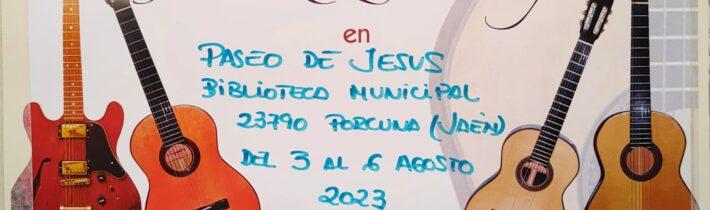 en
PASEO DE JESUS
BIBLIOTECA MUNICIPAL
23790 PORCUNA (JAÉN)
DEL 3 AL 6 AGOSTO
2023